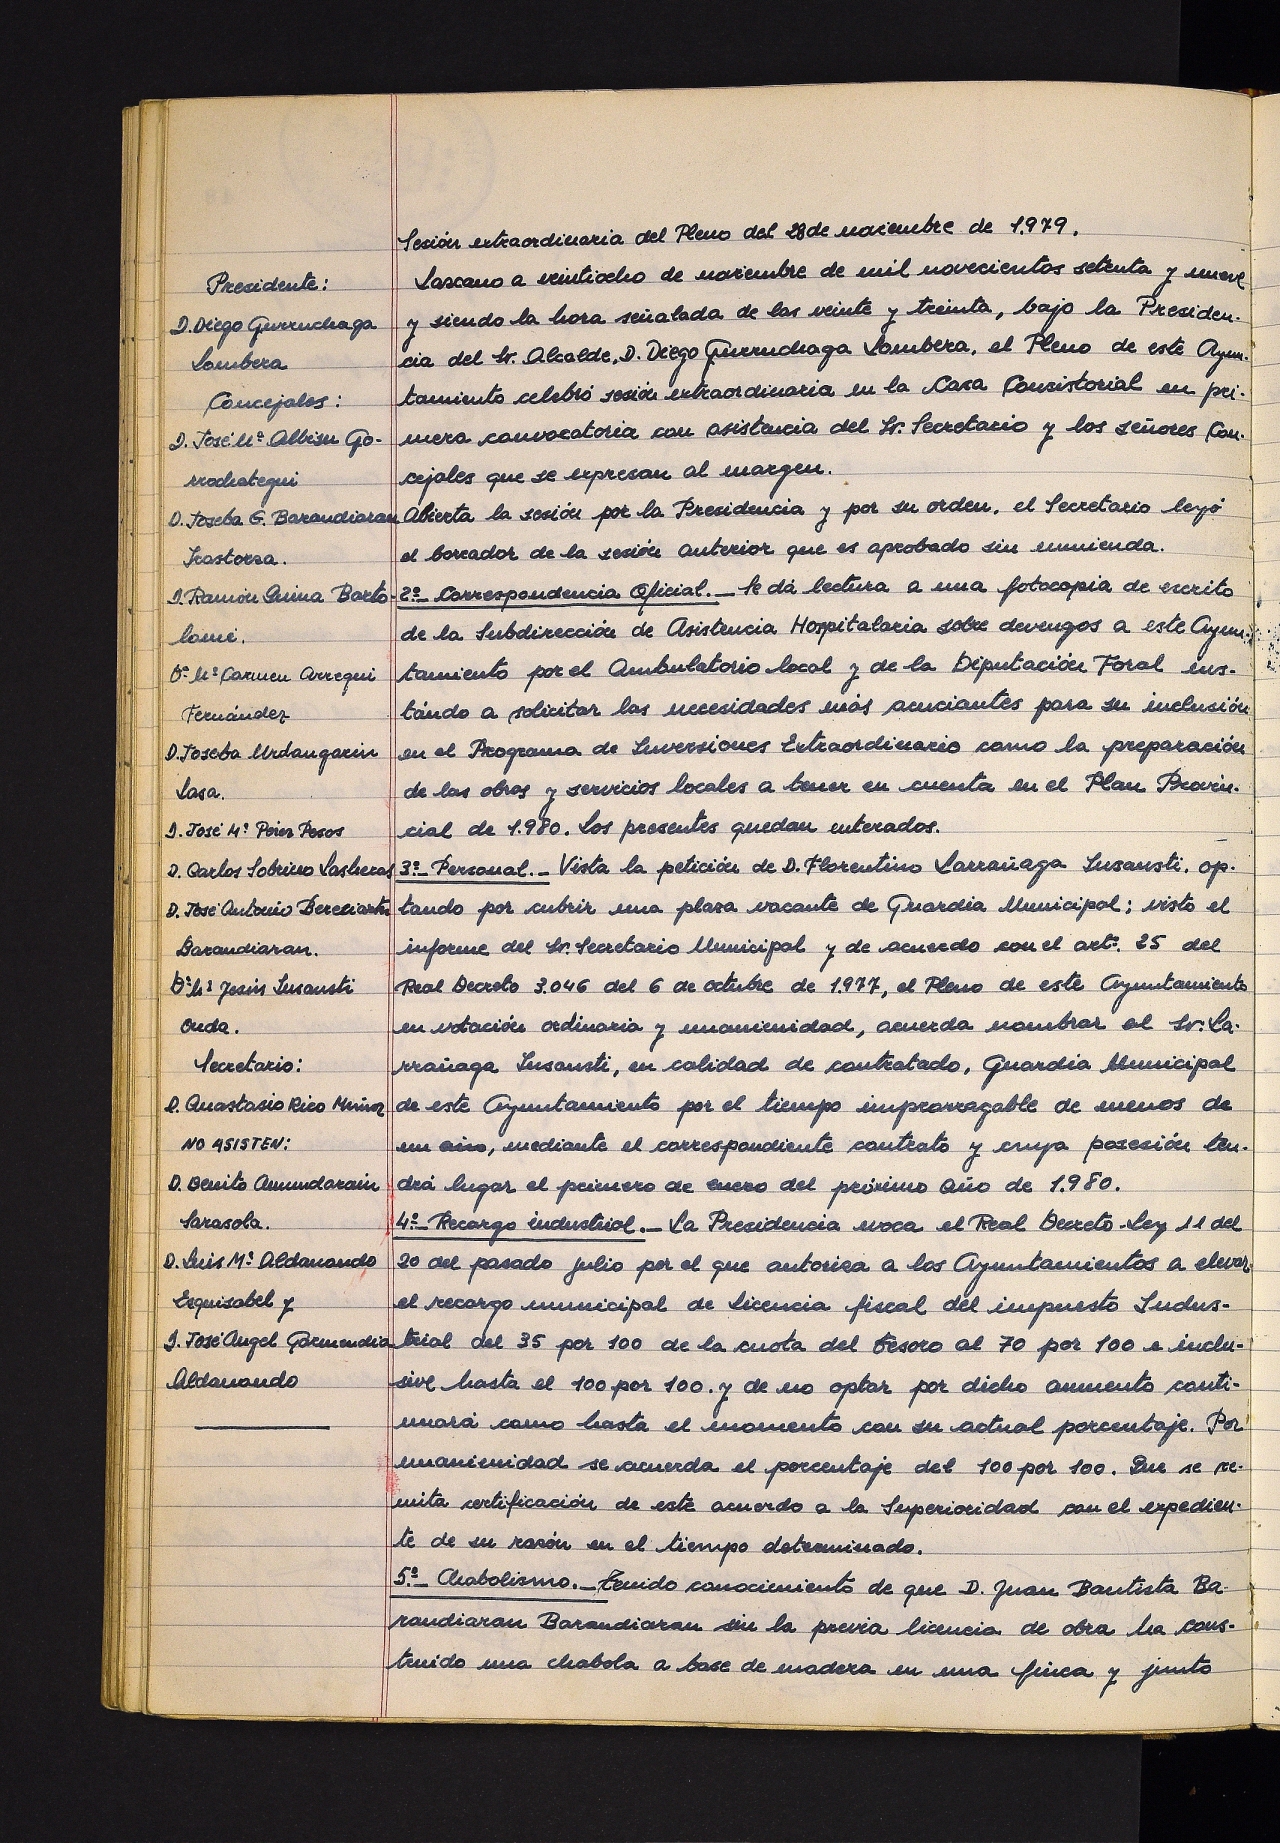 Sesión extraordinaria del Pleno del 28 de noviembre de 1.979.
Presidente:
D. Diego Gurruchaga
Lombera
Concejales:
D. José Mª Albisu Go-
rrochategui
D. Joseba G. Barandiaran
Irastorza.
D. Ramón Guima Barto-
lomé.
Dª Mª Carmen Arregui
Fernández
D. Joseba Urdangarin
Lasa.
D. José Mª Pérez Pesos
D. Carlos Sobrino Lasheras
D. José Antonio Bereciartu
Barandiaran.
Dª Mª Jesús Insausti
Onda.
Secretario:
D. Anastasio Rico Muñoz
NO ASISTEN:
D. Benito Amundarain
Sarasola.
D. Luis Mª Aldanondo
Ezquisabel y
D. José Angel Garmendia
Aldanondo
Lazcano a veintiocho de noviembre de mil novecientos setenta y nueve
y siendo la hora señalada de las veinte y treinta, bajo la Presiden-
cia del Sr. Alcalde, D. Diego Gurruchaga Lombera, el Pleno de este Ayun-
tamiento celebró sesión extraordinaria en la Casa Consistorial en pri-
mera convocatoria con asistencia del Sr. Secretario y los señores Con-
cejales que se expresan al margen.
Abierta la sesión por la Presidencia y por su orden, el Secretario leyó
el borrador de la sesión anterior que es aprobado sin enmienda.
2º.- Correspondencia Oficial.- Se dá lectura a una fotocopia de escrito
de la Subdirección de Asistencia Hospitalaria sobre devengos a este Ayun-
tamiento por el Ambulatorio local y de la Diputación Foral ins-
tándo a solicitar las necesidades más acuciantes para su inclusión
en el Programa de Inversiones Extraordinario como la preparación
de las obras y servicios locales a tener en cuenta en el Plan Provin-
cial de 1.980. Los presentes quedan enterados.
3º.- Personal.- Vista la petición de D. Florentino Larrañaga Insausti, op-
tando por cubrir una plaza vacante de Guardia Municipal; visto el
informe del Sr. Secretario Municipal y de acuerdo con el artº. 25 del
Real Decreto 3.046 del 6 de octubre de 1.977, el Pleno de este Ayuntamiento
en votación ordinaria y unanimidad, acuerda nombrar al Sr. La-
rrañaga Insausti, en calidad de contratado, Guardia Municipal
de este Ayuntamiento por el tiempo improrrogable de menos de
un año, mediante el correspondiente contrato y cuya posesión ten-
drá lugar el primero de enero del próximo año de 1.980.
4º.- Recargo industrial.- La Presidencia evoca el Real Decreto-Ley 11 del
20 del pasado julio por el que autoriza a los Ayuntamientos a elevar
el recargo municipal de Licencia fiscal del impuesto Indus-
trial del 35 por 100 de la cuota del tesoro al 70 por 100 e inclu-
sive hasta el 100 por 100. y de no optar por dicho aumento conti-
nuará como hasta el momento con su actual porcentaje. Por
unanimidad se acuerda el porcentaje del 100 por 100. Que se re-
mita certificación de este acuerdo a la Superioridad con el expedien-
te de su razón en el tiempo determinado.
5º.- Chabolismo.- Tenido conocimiento de que D. Juan Bautista Ba-
randiaran Barandiaran sin la previa licencia de obra ha cons-
truido una chabola a base de madera en una finca y junto